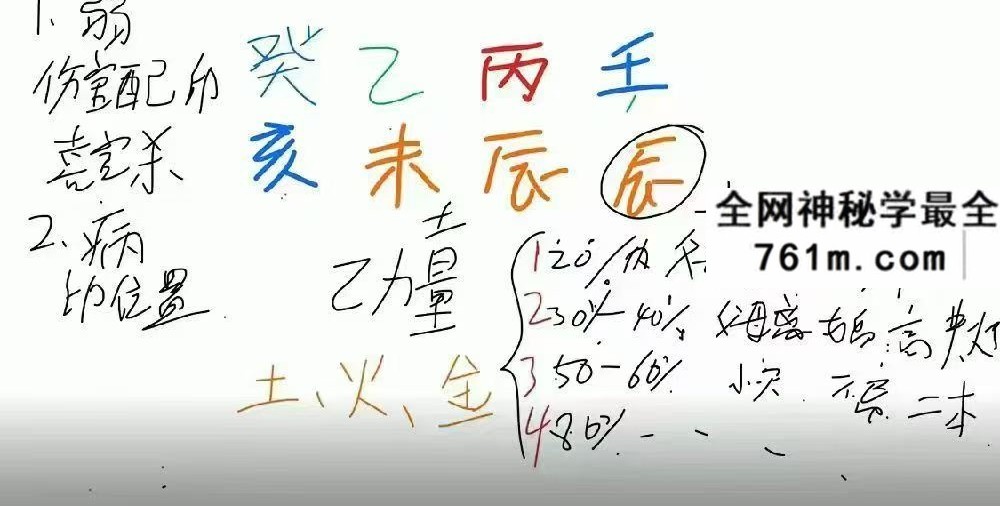 1、弱
伤官配印
喜官杀
2、病
印位置
癸 乙 丙 壬
亥 未 辰 辰
土
乙力量
土、火、金
1 20%
2 30%-40% 高
3 50-60% 小 二本
4 80%
全网神秘学最全
761m.com